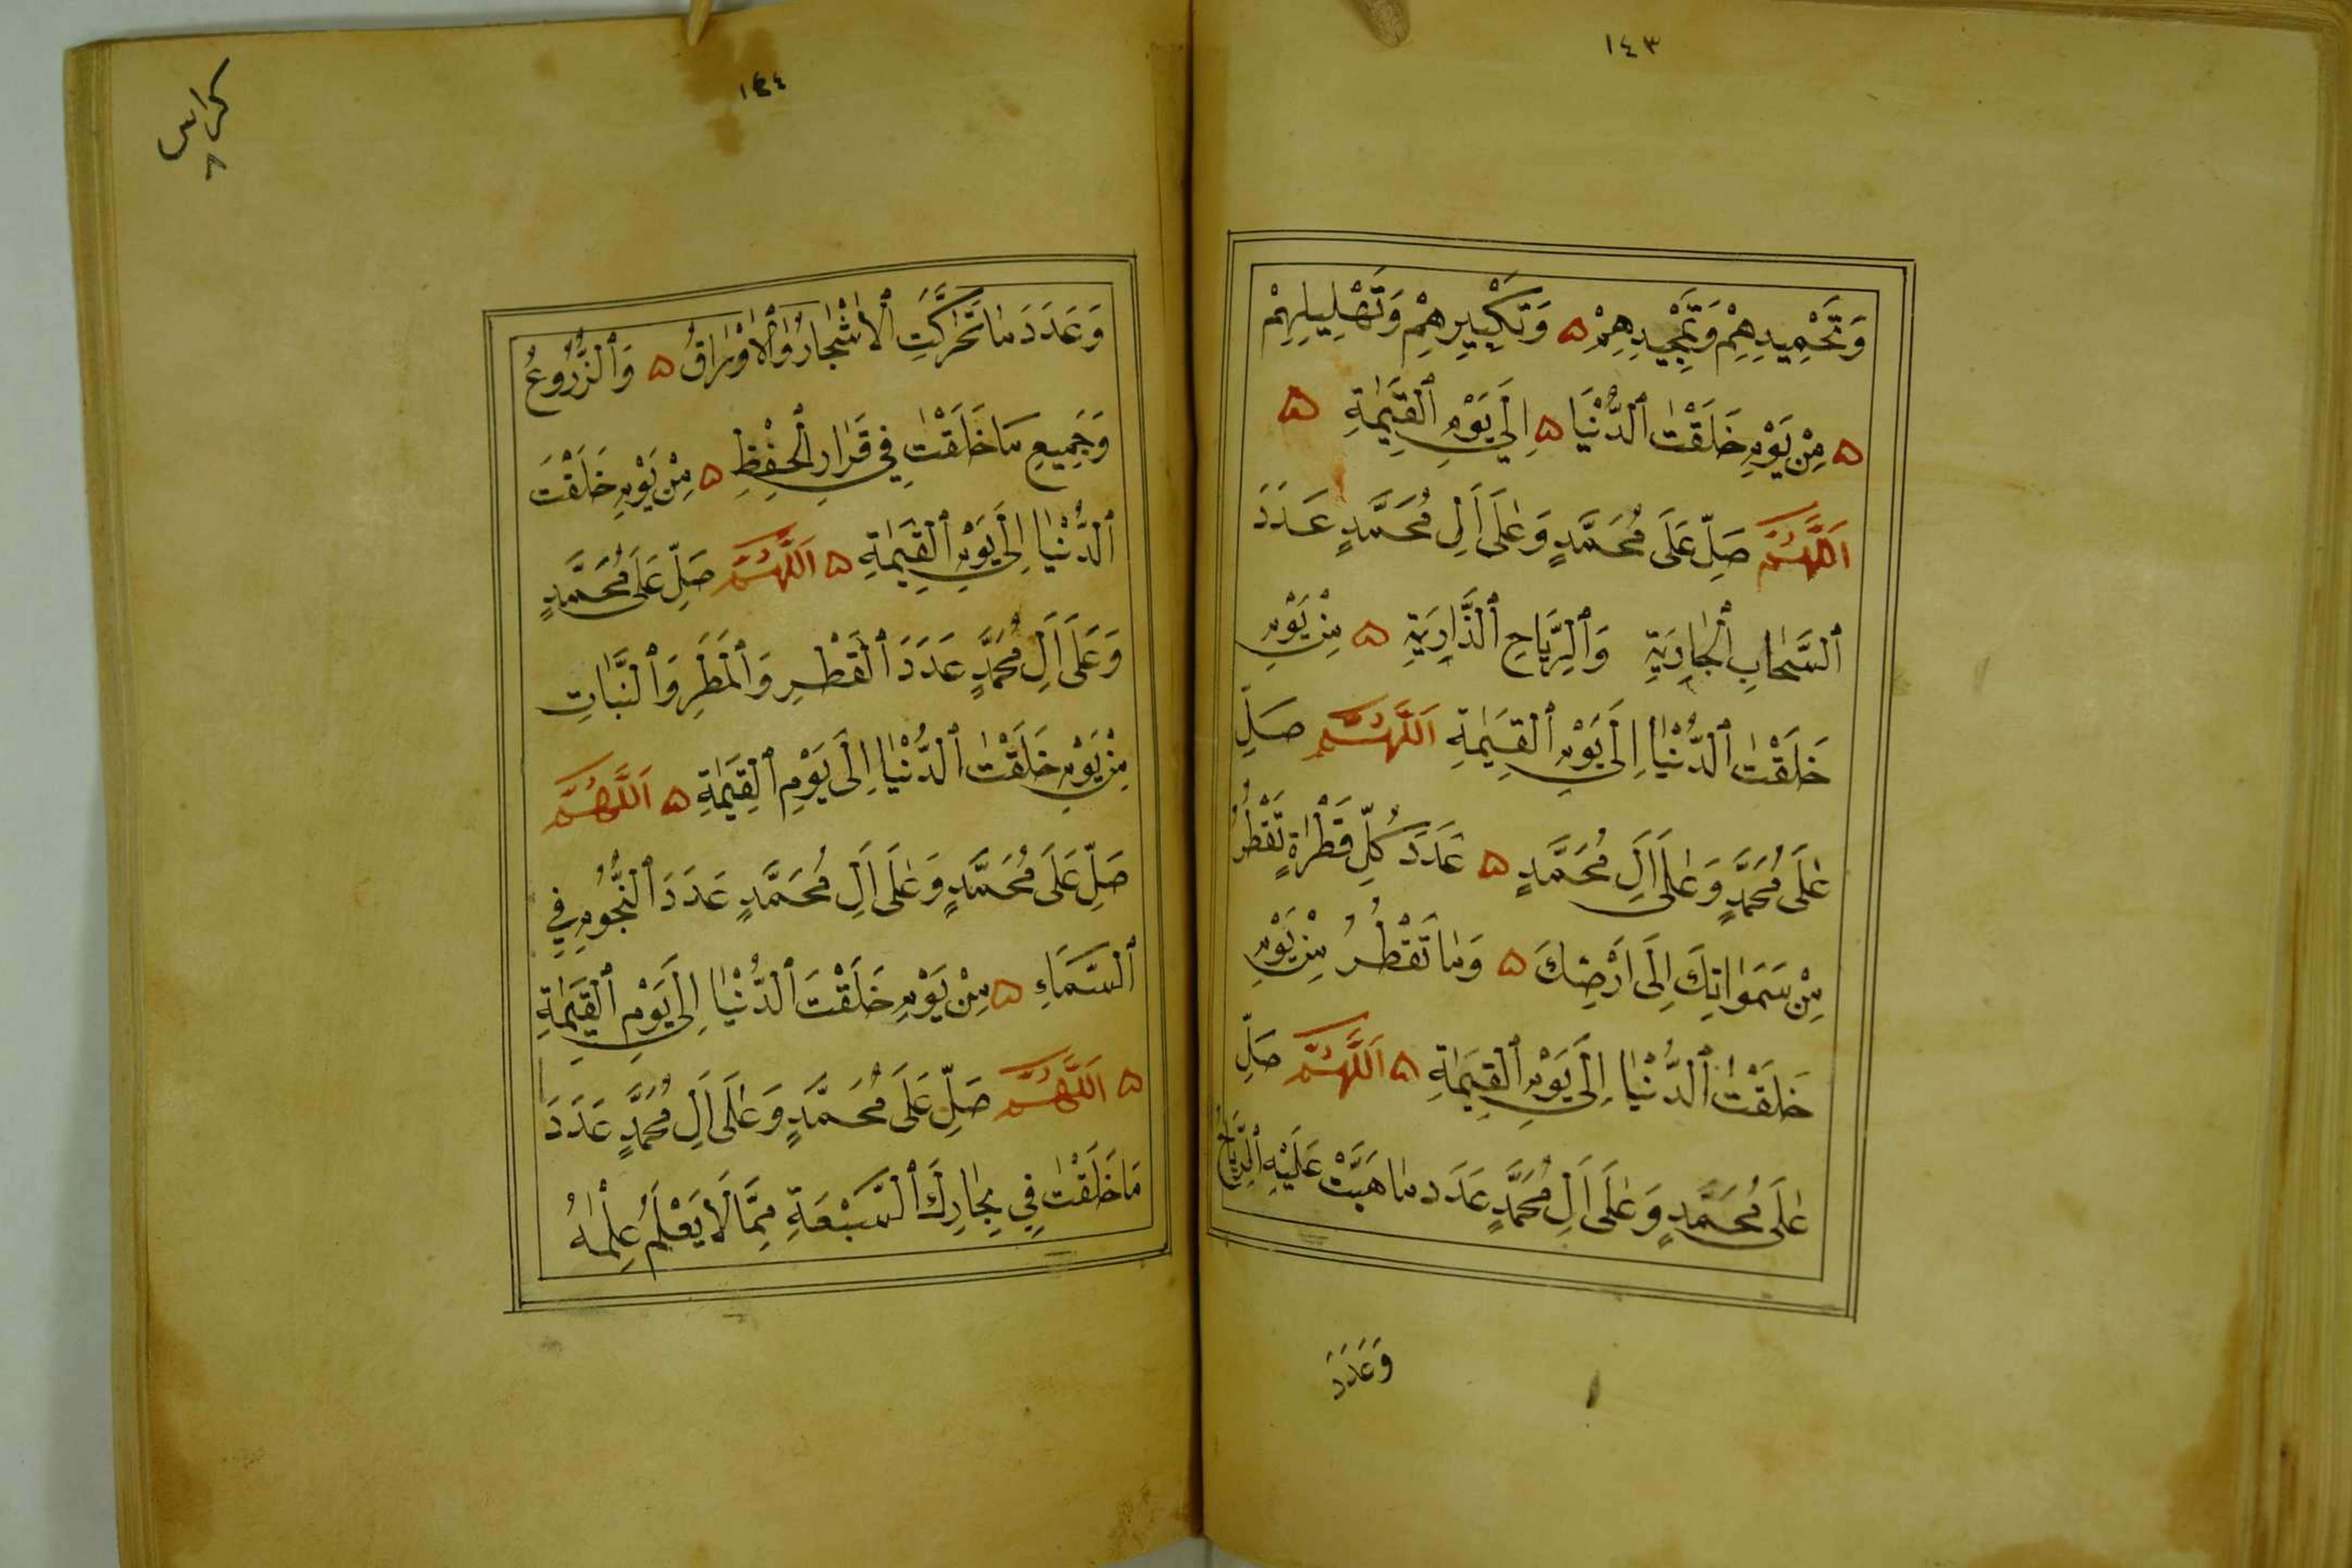 ١٤٣
وَتَحْمِيدِهِمْ وَتَمْجِيدِهِمْ ۵ وَتَكْبِيرِهِمْ وَتَهْلِيلِهِمْ
۵ مِنْ يَوْمِ خَلَقْتَ ٱلدُّنْيَا ۵ اِلَي يَوْمِ ٱلْقِيَمٰةِ ۵
اَللَّهُمَّ صَلِّ عَلَى مُحَمَّدٍ وَعَلَى اَلِ مُحَمَّدٍ عَدَدَ
ٱلسَّحَابِ ٱلْجَارِيَةِ وَٱلرِّيَاحِ ٱلذَّارِيَةِ ۵ مِنْ يَوْمِ
خَلَقْتَ ٱلدُّنْيَا اِلَى يَوْمِ ٱلْقِيَمٰةِ اَللَّهُمَّ صَلِّ
عَلَى مُحَمَّدٍ وَعَلَى اَلِ مُحَمَّدٍ ۵ عَدَدَ كُلِّ قَطْرَةٍ تَقْطُرُ
مِنْ سَمَوَاتِكَ اِلَى اَرْضِكَ ۵ وَمَا تَقْطُرُ مِنْ يَوْمِ
خَلَقْتَ ٱلدُّنْيَا اِلَى يَوْمِ ٱلْقِيَمٰةِ ۵ اَللَّهُمَّ صَلِّ
عَلَى مُحَمَّدٍ وَعَلَى اَلِ مُحَمَّدٍ عَدَدَ مَا هَبَّتْ عَلَيْهِ ٱلرِّيَاحُ
وَعَدَدَ
١٤٤
كراس
وَعَدَدَ مَا تَحَرَّكَتِ ٱلْاَشْجَارُ وَٱلْاَوْرَاقُ ۵ وَٱلزُّرُوعُ
وَجَمِيعِ مَا خَلَقْتَ فِي قَرَارِ ٱلْحِفْظِ ۵ مِنْ يَوْمِ خَلَقْتَ
ٱلدُّنْيَا اِلَى يَوْمِ ٱلْقِيَمٰةِ ۵ اَللَّهُمَّ صَلِّ عَلَى مُحَمَّدٍ
وَعَلَى اَلِ مُحَمَّدٍ عَدَدَ ٱلْقَطْرِ وَٱلْمَطَرِ وَٱلنَّبَاتِ
مِنْ يَوْمِ خَلَقْتَ ٱلدُّنْيَا اِلَى يَوْمِ ٱلْقِيَمٰةِ ۵ اَللَّهُمَّ
صَلِّ عَلَى مُحَمَّدٍ وَعَلَى اَلِ مُحَمَّدٍ عَدَدَ ٱلنُّجُومِ فِي
ٱلسَّمَاءِ ۵ مِنْ يَوْمِ خَلَقْتَ ٱلدُّنْيَا اِلَى يَوْمِ ٱلْقِيَمٰةِ
۵ اَللَّهُمَّ صَلِّ عَلَى مُحَمَّدٍ وَعَلَى اَلِ مُحَمَّدٍ عَدَدَ
مَا خَلَقْتَ فِي بِحَارِكَ ٱلسَّبْعَةِ مِمَّا لَا يَعْلَمُ عِلْمَهُ